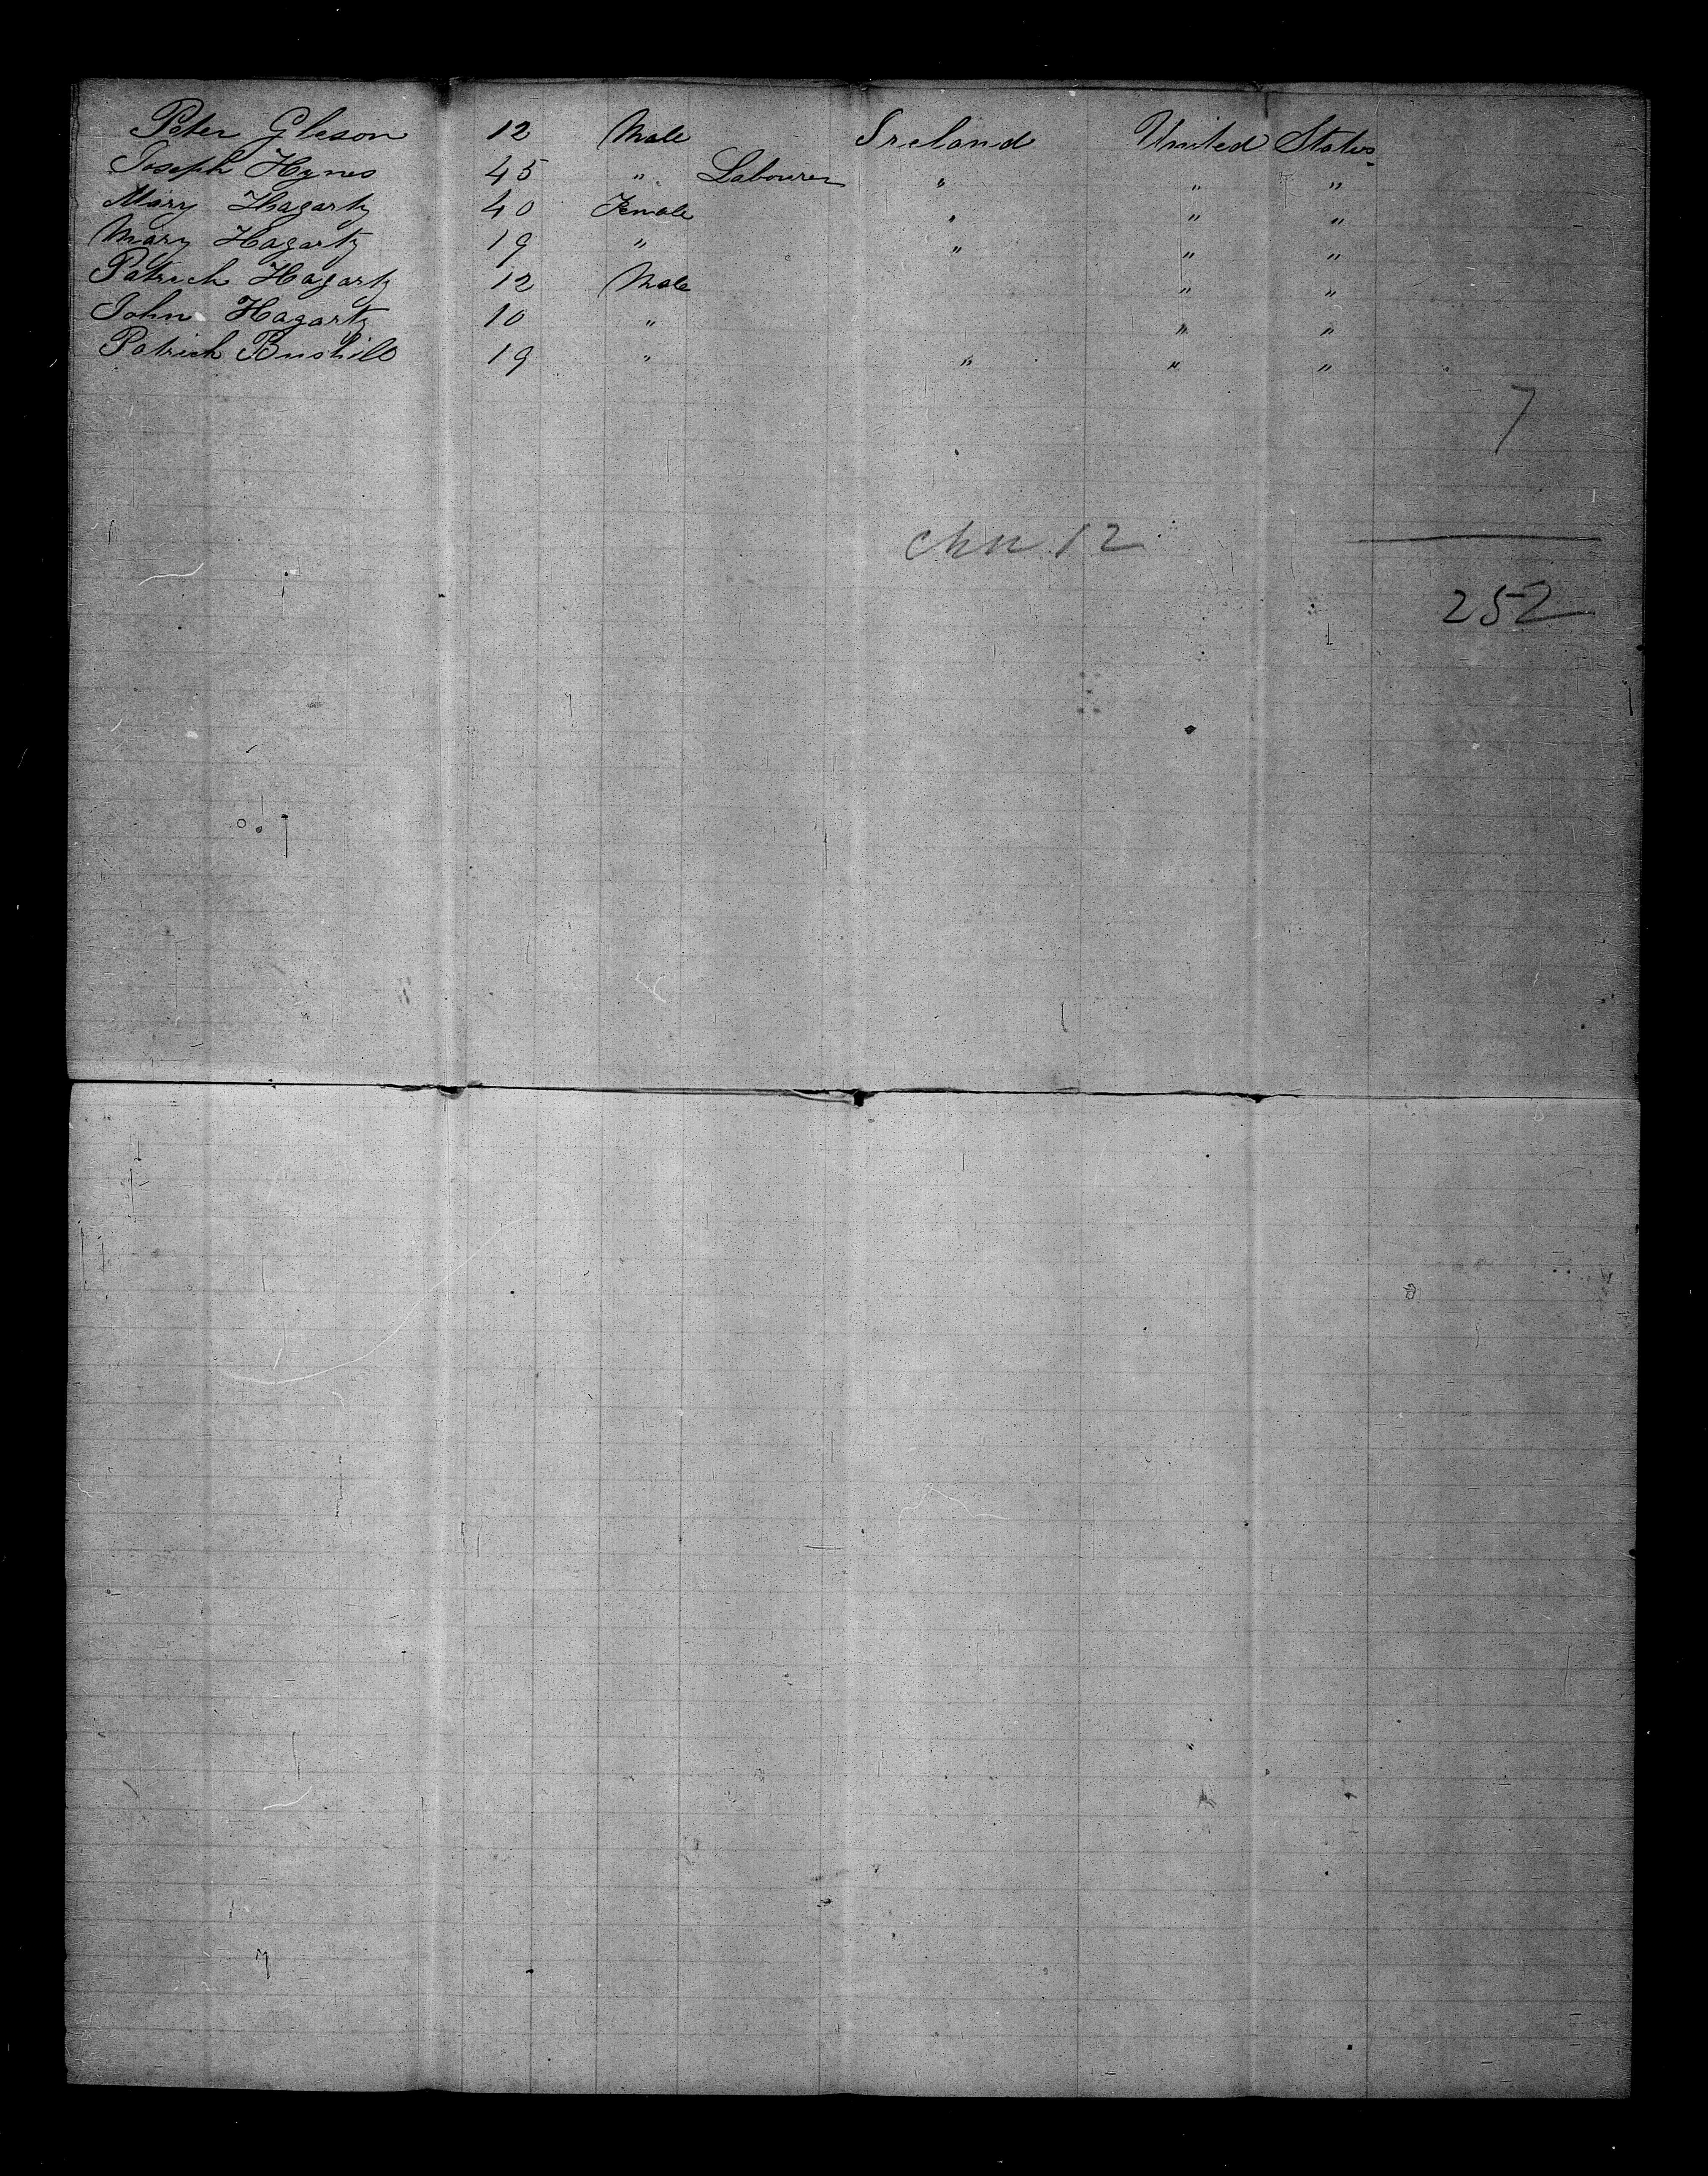 Peter Gleson 12 Male Ireland United States
Joseph Hynes 45 " Labourer " " "
Mary Hagarty 40 Female " " "
Mary Hagarty 19 " " " "
Patrick Hagarty 12 Male " "
John Hagarty 10 " " "
Patrick Bushill 19 " " " "
7
chn 12
252